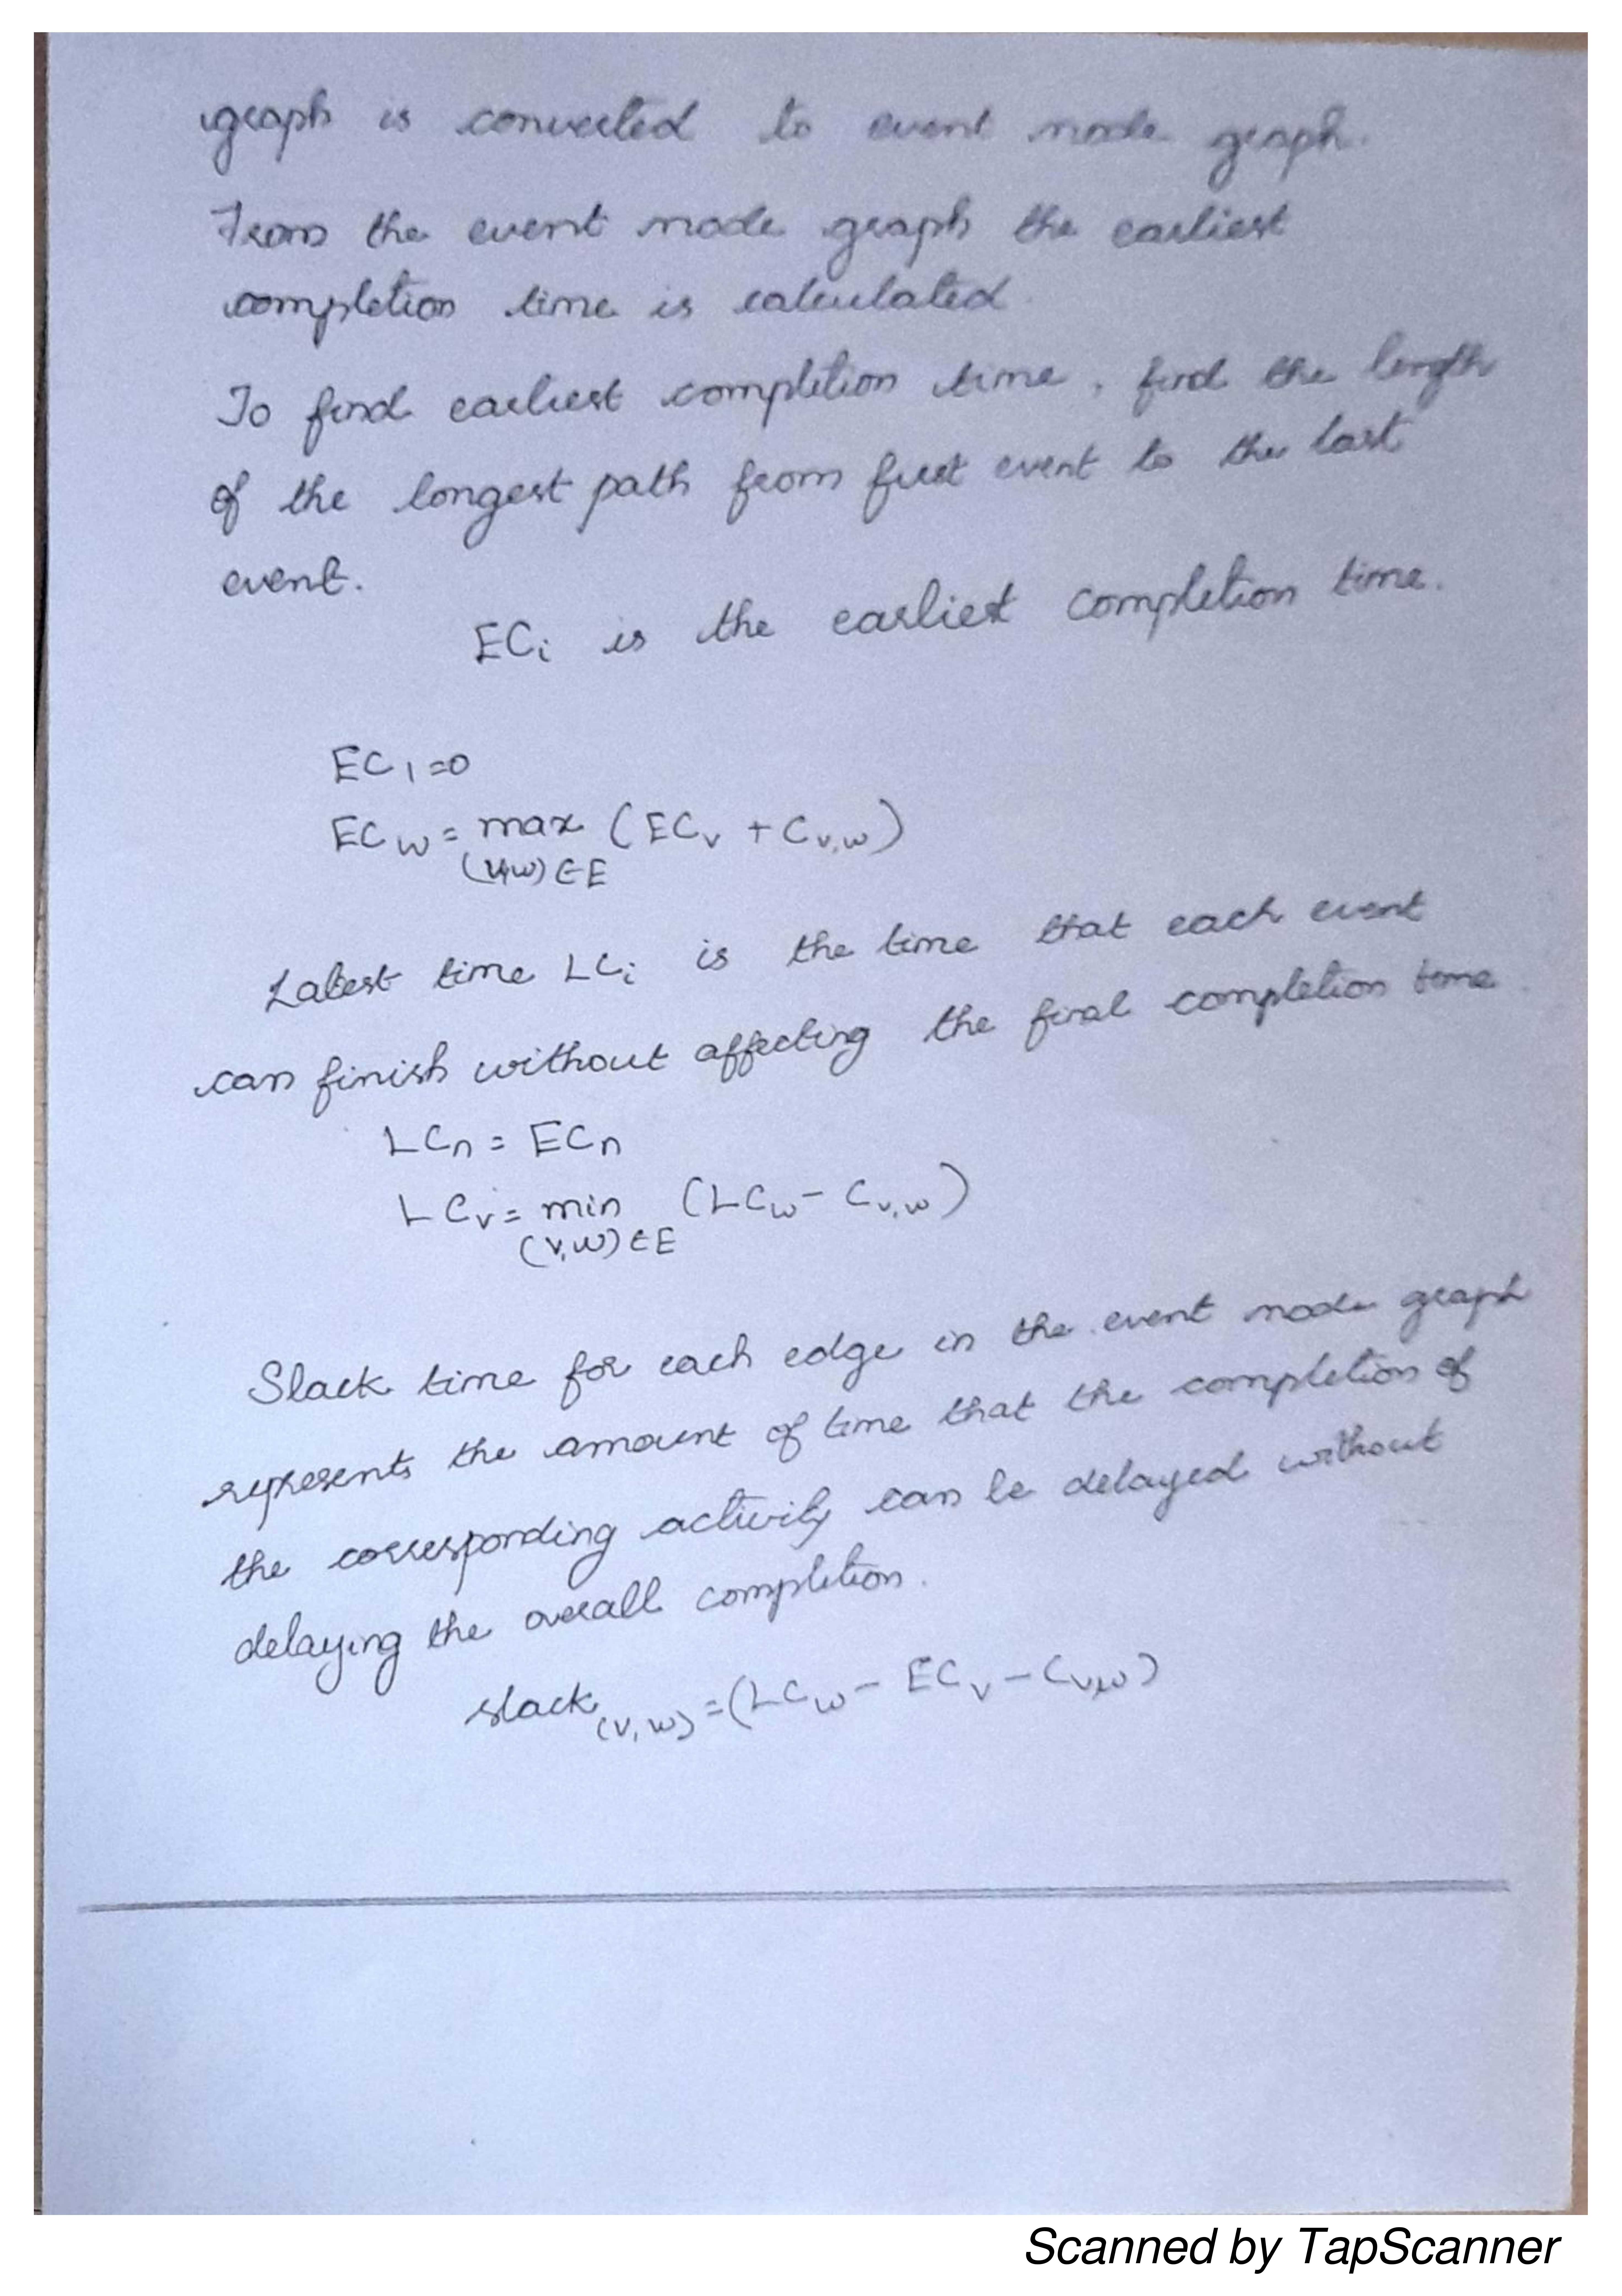 graph is converted to event node graph.
From the event node graph the earliest
completion time is calculated.
To find earliest completion time, find the length
of the longest path from first event to the last
event.
ECi is the earliest completion time.
EC1=0
ECw= max (ECv + Cv,w)
(v,w)∈E
Latest time LCi is the time that each event
can finish without affecting the final completion time.
LCn = ECn
LCv= min (LCw- Cv,w)
(v,w)∈E
Slack time for each edge in the event node graph
represents the amount of time that the completion of
the corresponding activity can be delayed without
delaying the overall completion.
slack(v,w) =(LCw- ECv-Cv,w)
Scanned by TapScanner